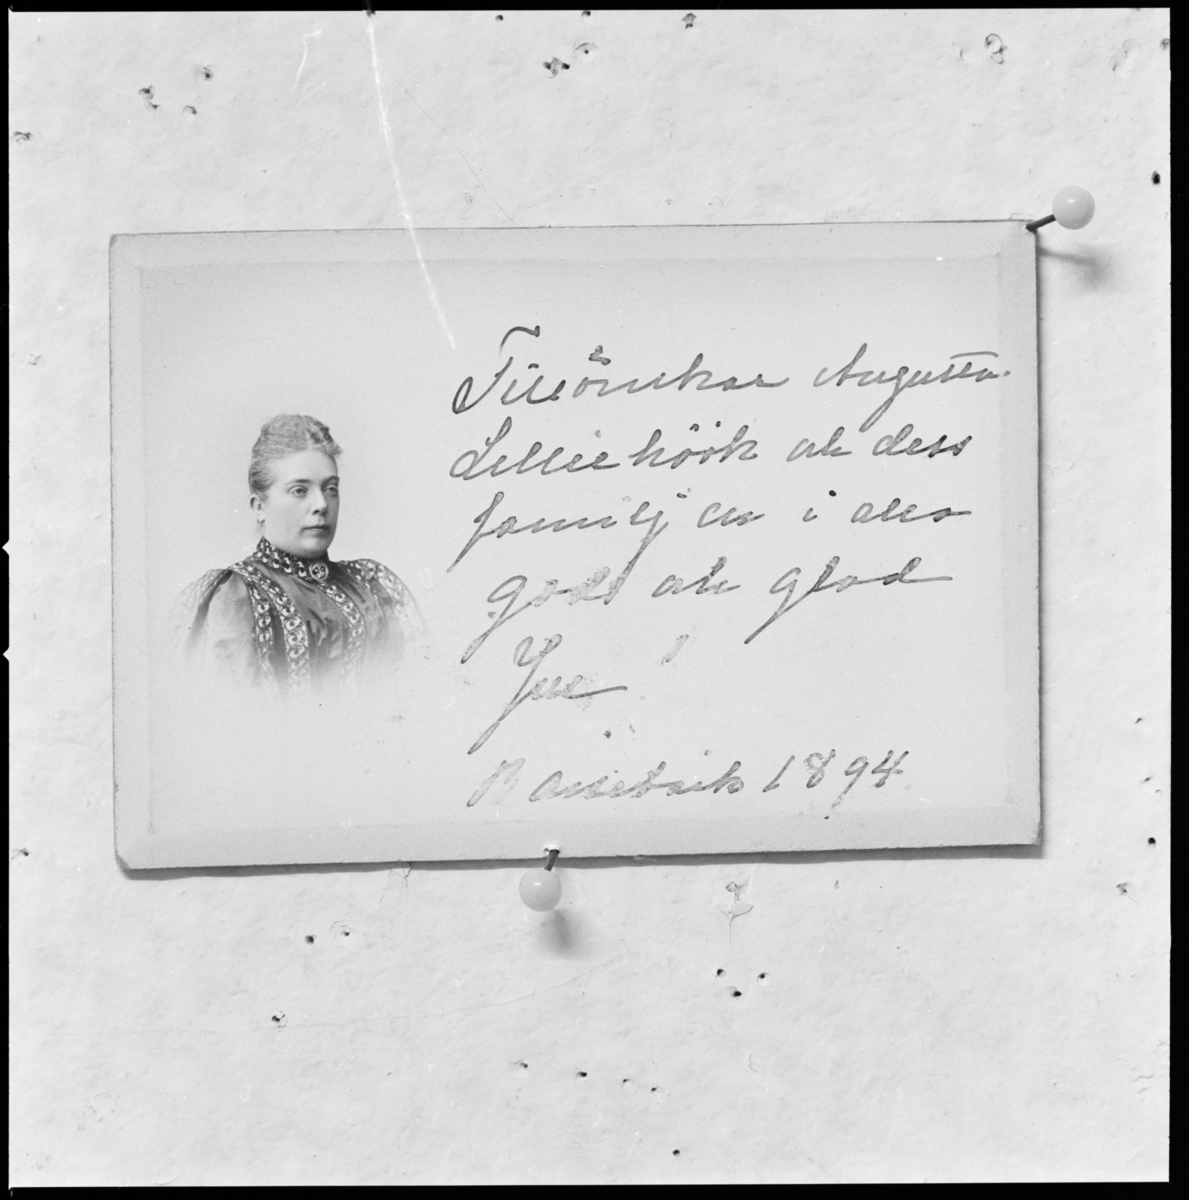 Tillönskar Augusta
Lilliehöök ok dess
familj en i allo
god ok glad
Jul!
Barsebäck 1894.